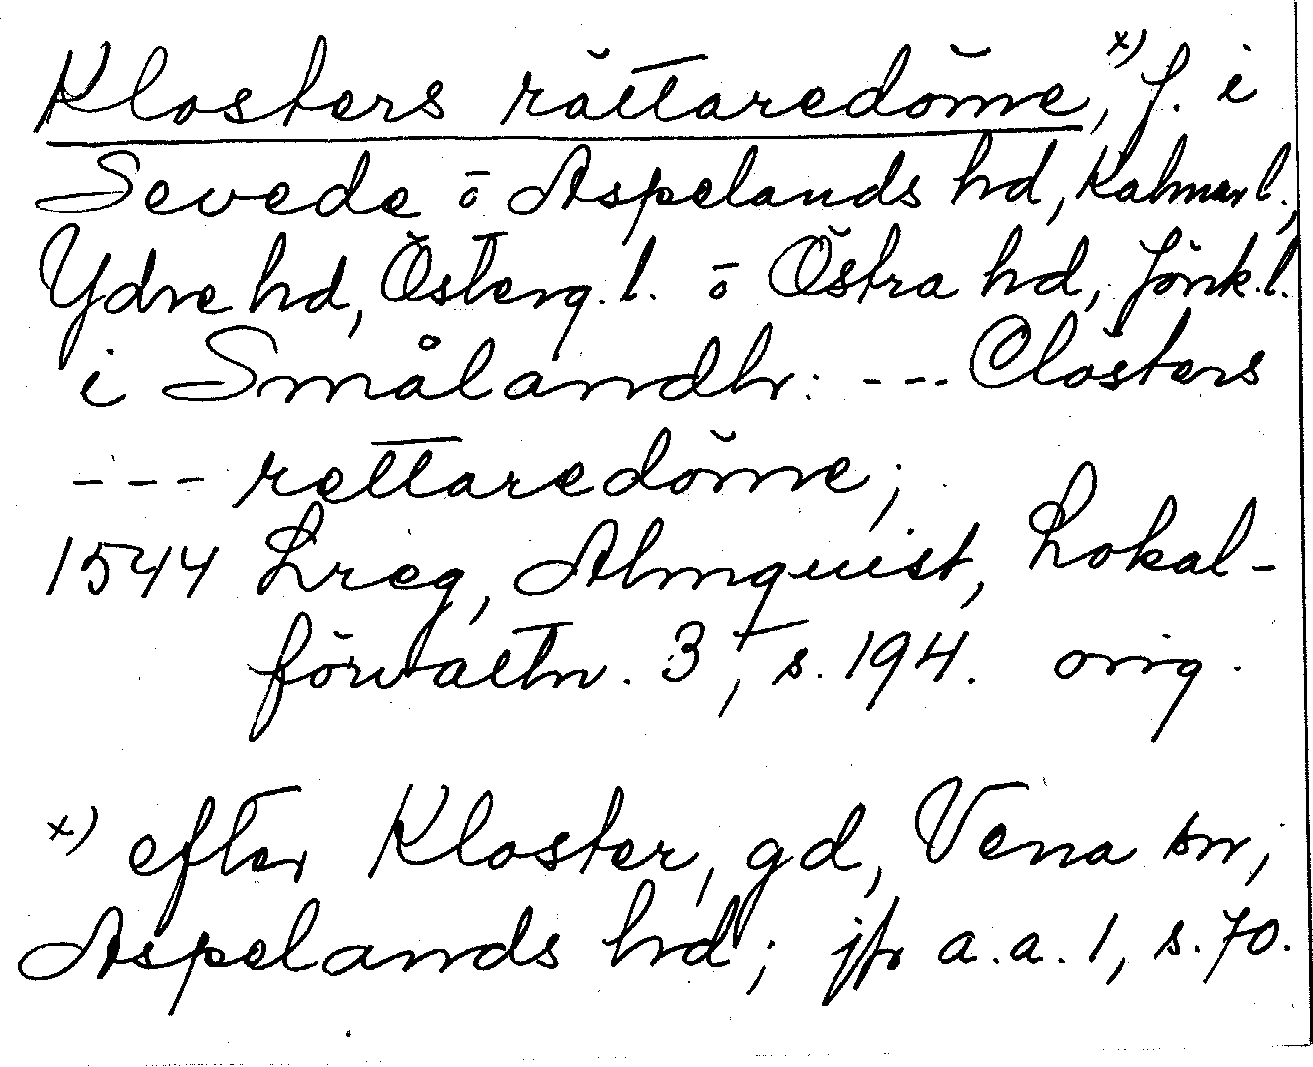 Klosters rättaredöme,ˣ⁾ f. i
Sevede o Aspelands hd, Kalmar l.,
Ydre hd, Österg. l. o Östra hd, Jönk. l.
i Smålandh: --- Closters
--- rettaredöme;
1544 Lreg, Almquist, Lokal-
förvaltn. 3, s. 194. orig.
ˣ⁾ efter Kloster, gd, Vena sn,
Aspelands hd; jfr a.a. 1, s. 70.